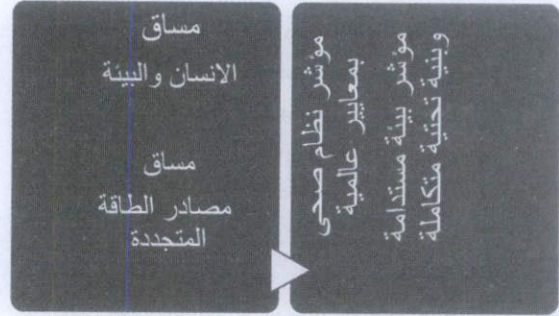 مساق
الانسان والبيئة
مساق
مصادر الطاقة
المتجددة
مؤشر نظام صحى
بمعايير عالمية
مؤشر بيئة مستدامة
وبنية تحتية متكاملة